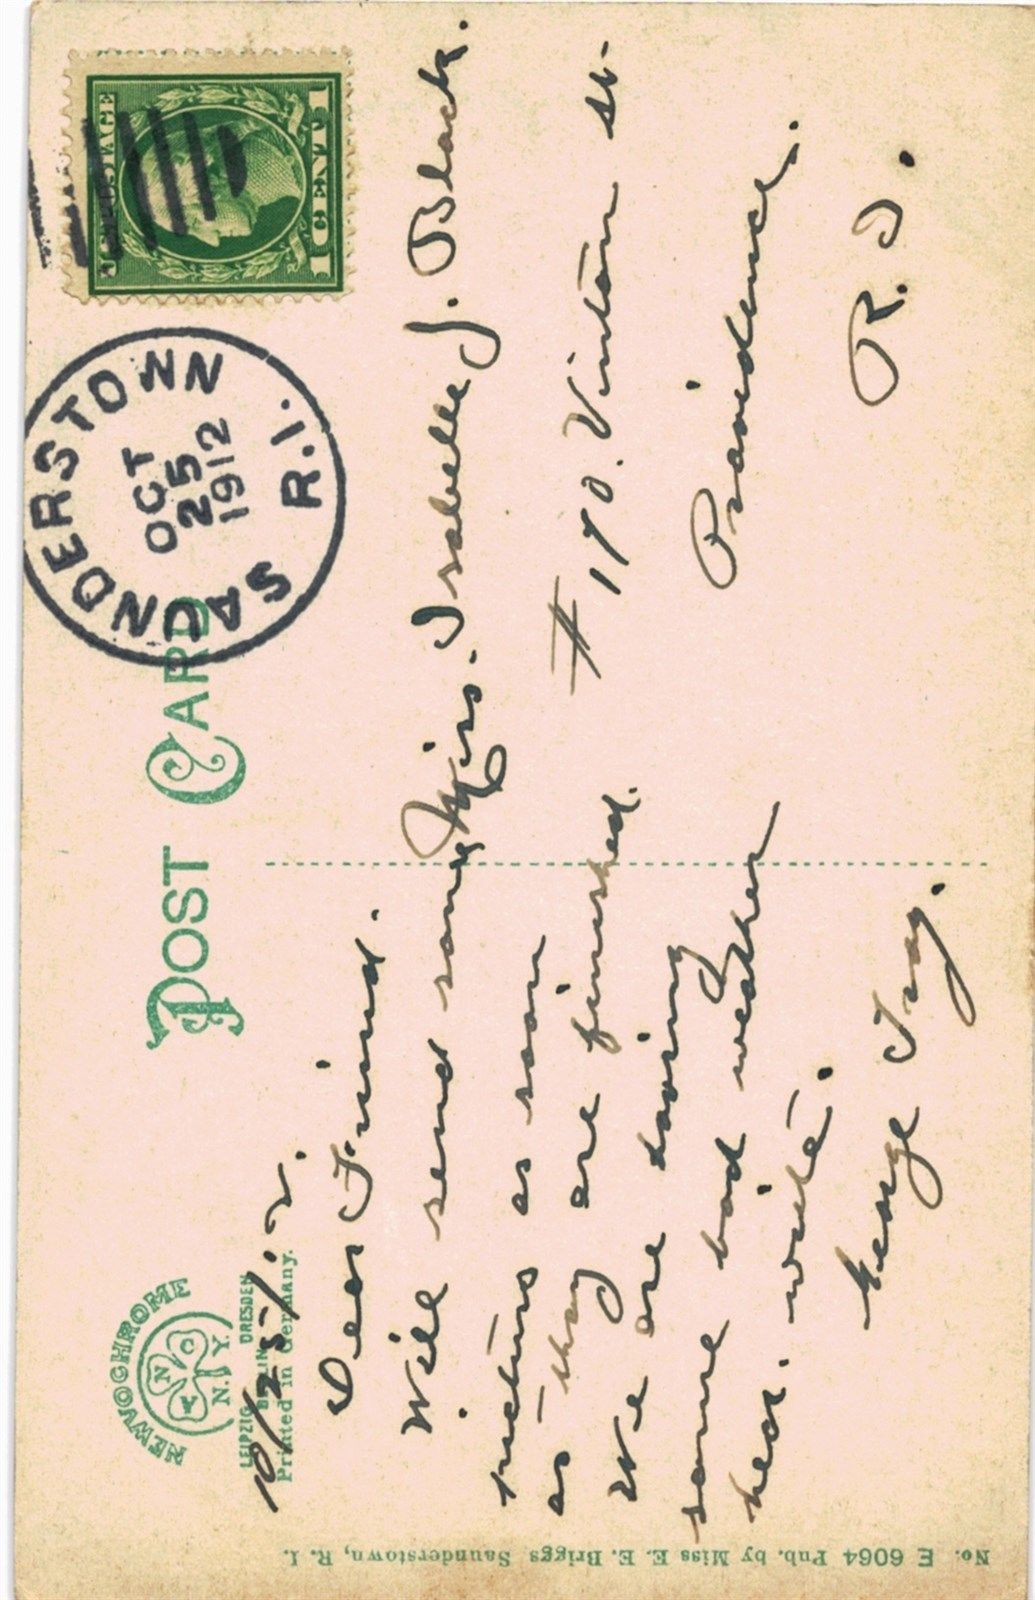 No. E 6064 Pub. by Miss E. E. Briggs Saunderstown, R. I.
NEWVOCHROME
A N C
N. Y.
LEIPZIG DRESDEN
BERLIN
Printed in Germany.
POST CARD
SAUNDERSTOWN R.I.
OCT
25
1912
POSTAGE
1 CENT 1
10/25/12.
Dear Friend.
Will send some
pictures as soon
as they are finished.
We are having
some bad weather
here. write.
George
Miss. Isabelle J. Black.
# 190. Vinton St.
Providence.
R. I.